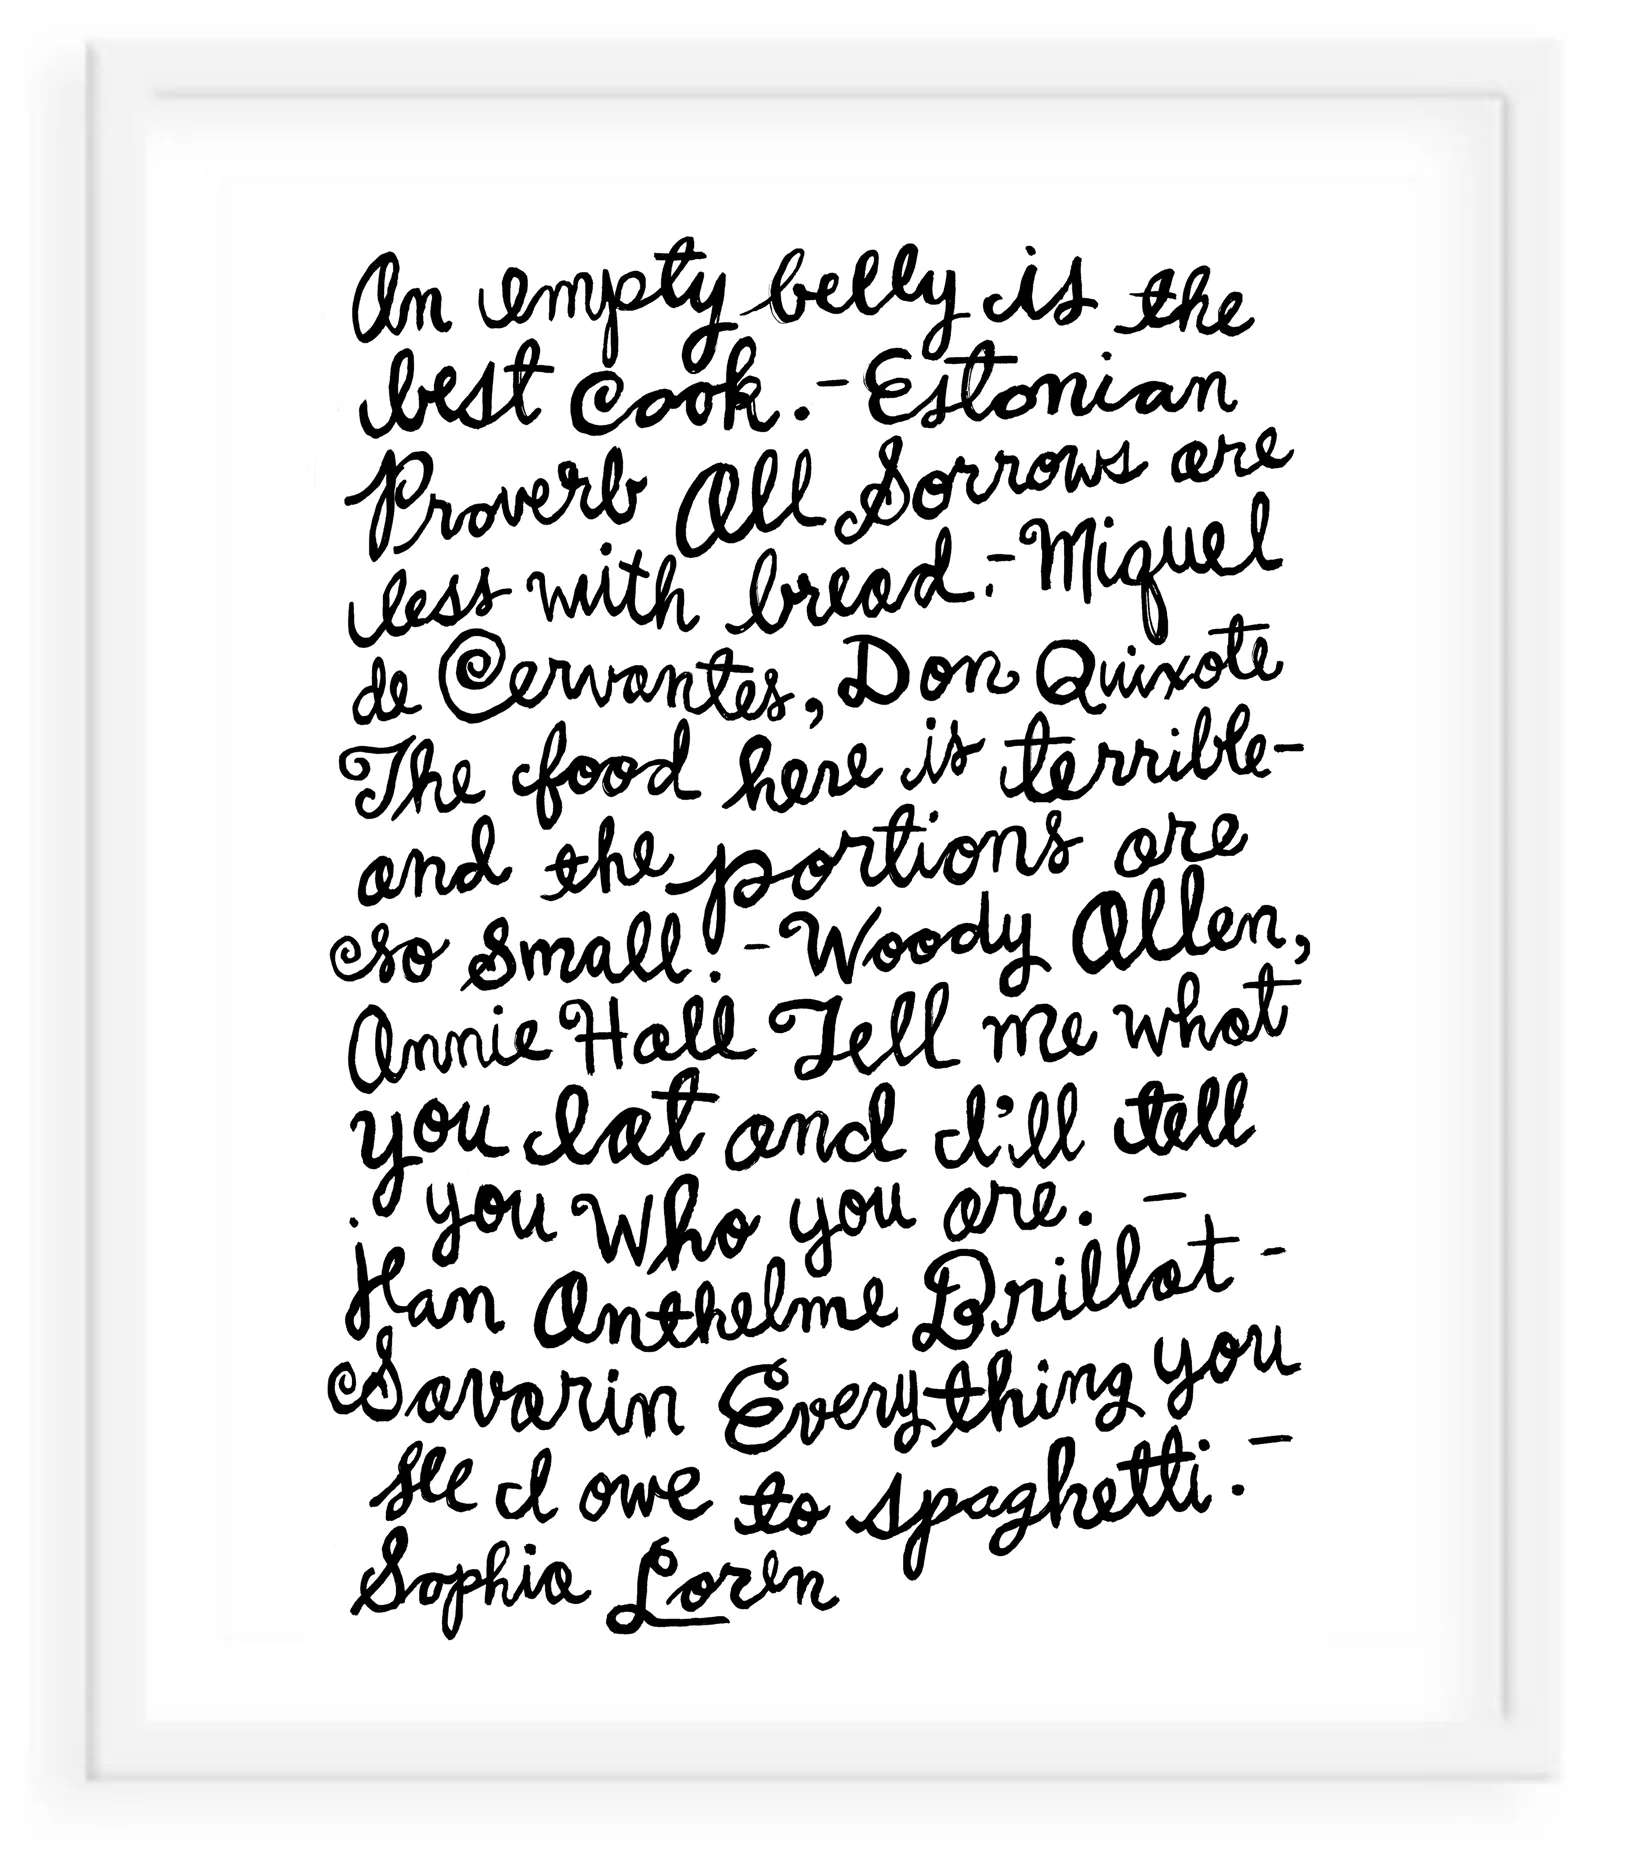 An empty belly is the
best Cook. - Estonian
Proverb All Sorrows are
less with bread. - Miguel
de Cervantes, Don Quixote
The food here is terrible -
and the portions are
so small! - Woody Allen,
Annie Hall Tell me what
you eat and I'll tell
you Who you are. -
Jean Anthelme Brillat -
Savarin Everything you
see I owe to spaghetti. -
Sophia Loren